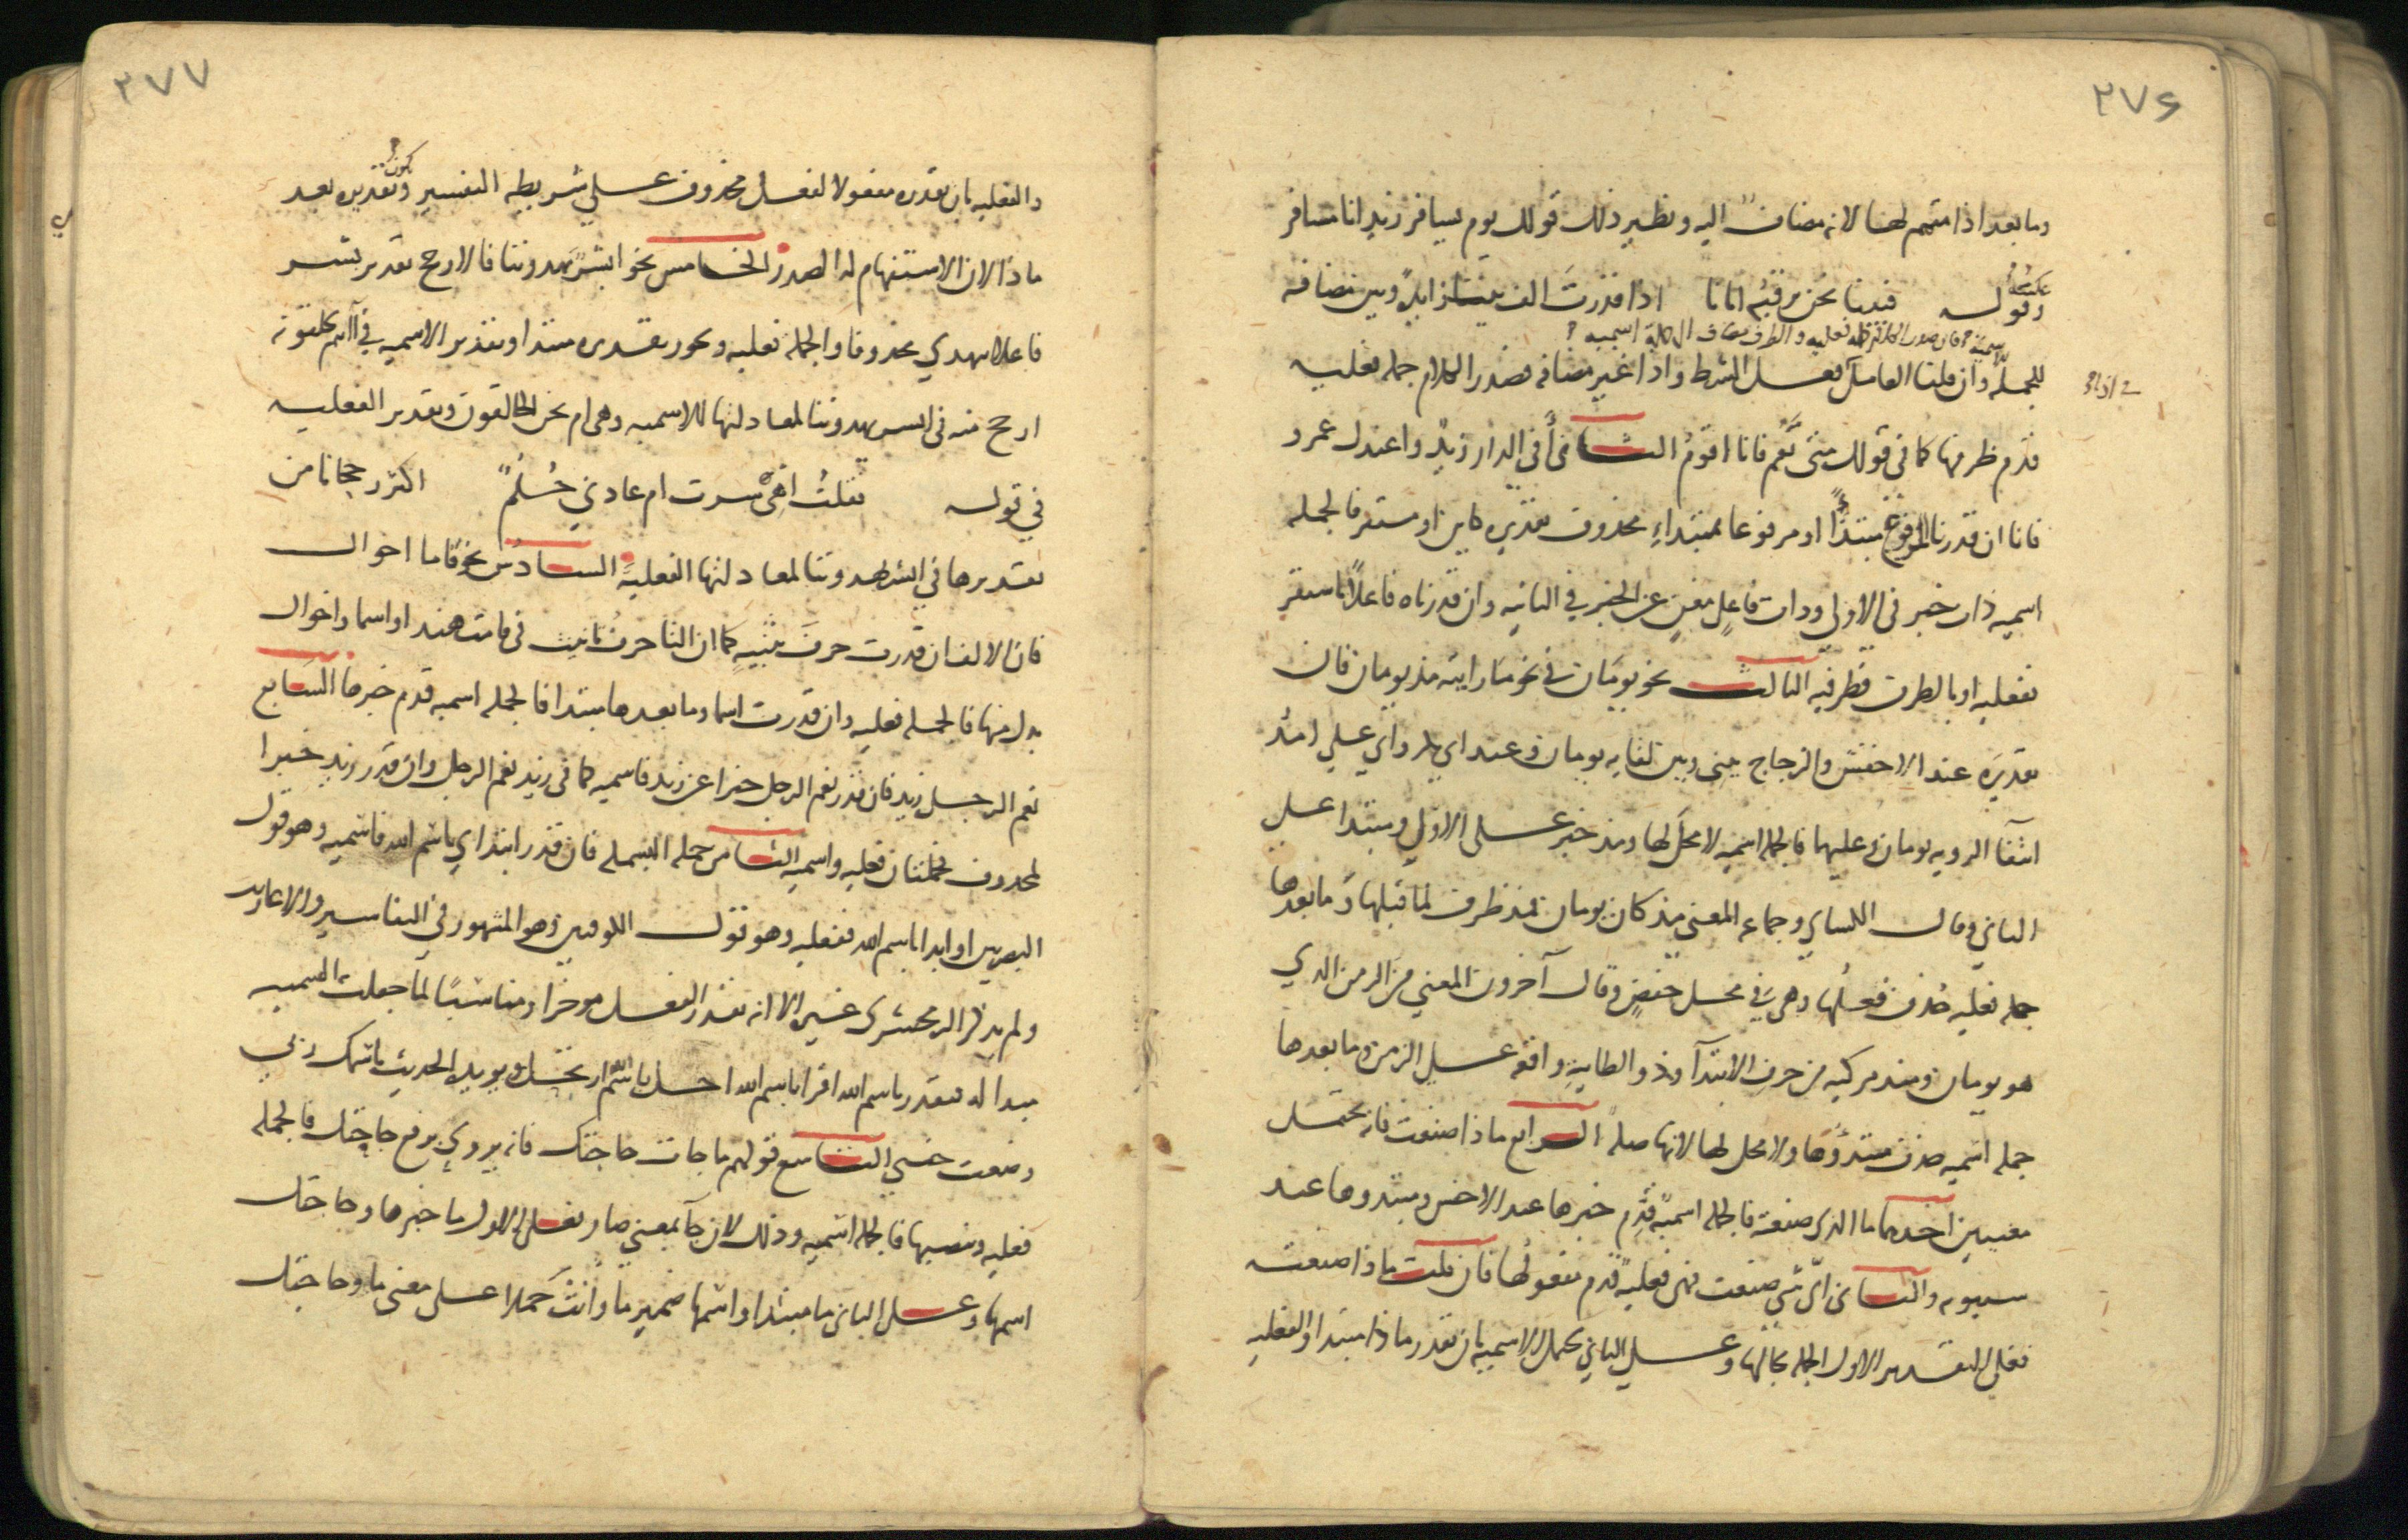 ٢٧٦
وما بعد اذا متمم لها لانه مضاف اليه ونظير ذلك قولك يوم يسافر زيد انا مسافر
وعكسه قوله فبينا نحن نرقبه اتانا اذا قدرت الف بينا زايدة وبين مضافه
للجملة الاسمية فان صدر الكلام جملة فعليه والظرف مضاف الى جملة اسميه
للجمله وان قلنا العامل فعل الشرط واذا غير مضافه فصدر الكلام جمله فعليه
قدم ظرفها كما في قولك متى تقم فانا اقوم الثاني أفي الدار زيد واعندك عمرو
فانا ان قدرنا المرفوع مبتدأ او مرفوعا بمبتداء محذوف تقديره كاين او مستقر فالجمله
اسميه ذات خبر في الاولى وذات فاعل مغن عن الخبر في الثانيه وان قدرناه فاعلا باستقر
ففعليه او بالظرف فظرفيه الثالث نحو يومان في نحو ما رايته مذ يومان فان
تقديره عند الاخفش والزجاج بيني وبين لقايه يومان وعند ابي بكر وابي علي امد
انتفا الرويه يومان وعليهما فالجمله اسميه لا محل لها ومذ خبر على الاول ومبتدا على
الثاني وقال الكسائي وجماعه المعنى مذ كان يومان فمذ ظرف لما قبلها وما بعدها
جمله فعليه حذف فعلها وهي في محل خفض وقال آخرون المعنى من الزمن الذي
هو يومان ومنذ مركبه من حرف الابتدآ وذو الطاييه واقعه على الزمن وما بعدها
جمله اسميه حذف مبتدؤها ولا محل لها لانها صله الرابع ماذا صنعت فانه يحتمل
معنيين احدهما ما الذي صنعته فالجمله اسمية قدم خبرها عند الاخفش ومبتدوها عند
سيبويه والثاني اي شي صنعت فهي فعلية قدم مفعولها فان قلت ماذا صنعته
فعلى التقدير الاول الجمله بحالها وعلى الثاني تحتمل الاسميه بان تقدر ماذا مبتدا والفعليه
٢٧٧
والفعليه بان تقدره مفعولا لفعل محذوف على شريطه التفسير ويكون تقديره بعد
ماذا لان الاستفهام له الصدر الخامس نحو ابشر يهدوننا فالارجح تقدير بشر
فاعلا ليهدي محذوفا والجمله فعليه ويجوز تقديره مبتدا وتقدير الاسميه في أانتم تخلقونه
ارجح منه في ابشر يهدوننا لمعادلتها للاسميه وهي ام نحن الخالقون وتقدير الفعليه
في قوله فقلت اهي سرت ام عادني حلم اكثر رجحانا من
تقديرها في ابشر يهدوننا لمعادلتها الفعلية السادس نحو قاما اخواك
فان الالف ان قدرت حرف تثنيه كما ان التا حرف تانيث في قامت هند او اسما واخواك
بدل منها فالجمله فعليه وان قدرت اسما وما بعدها مبتدا فالجمله اسميه قدم خبرها السابع
نعم الرجل زيد فان قدر نعم الرجل خبرا عن زيد فاسميه كما في زيد نعم الرجل وان قدر زيد خبرا
لمحذوف فجملتان فعليه واسميه الثامن جمله البسمله فان قدر ابتداي باسم الله فاسميه وهو قول
البصريين او ابدا باسم الله ففعليه وهو قول الكوفيين وهو المشهور في التفاسير والاعاريب
ولم يذكر الزمخشري غيره الا انه يقدر الفعل موخرا ومناسبا لما جعلت التسميه
مبدا له فيقدر باسم الله اقرا باسم الله احل باسم الله ارتحل ويويده الحديث باسمك ربي
وضعت جنبي التاسع قولهم ما جات حاجتك فانه يروي برفع حاجتك فالجمله
فعليه وبنصبها فالجمله اسميه وذلك لان جآ بمعنى صار فعلى الاول ما خبرها وحاجتك
اسمها وعلى الثاني ما مبتدا واسمها ضمير ما وانث حملا على معنى ما وحاجتك